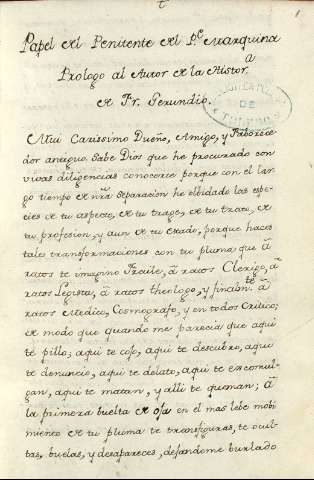 1
Papel del Penitente del P.e Marquina
Prologo al Autor de la Histor.a
de Fr. Gerundio.
DE
Mui Carissimo Dueño, Amigo, y Faborece
dor antiguo. Sabe Dios que he procurado con
vivas diligencias conocerte porque con el lar
go tiempo de nrã separacion he olbidado las espe
cies de tu aspecto, de tu trage, de tu trato, de
tu profesion, y aun de tu estado, porque haces
tales transformaciones con tu pluma que â
ratos te imagino Fraile, â ratos Clerigo, â
ratos Legista, â ratos theologo, y finalm.te â
ratos Medico, Cosmografo, y en todos Critico;
de modo que quando me parecia que aqui
te pillo, aqui te cojo, aqui te descubro, aqui
te denuncio, aqui te delato, aqui te excomul
gan, aqui te matan, y alli te queman; â
la primera buelta de oja en el mas lebe mobi
miento de tu pluma te transfiguras, te ocul
tas, buelas, y desapareces, dejandome burlado